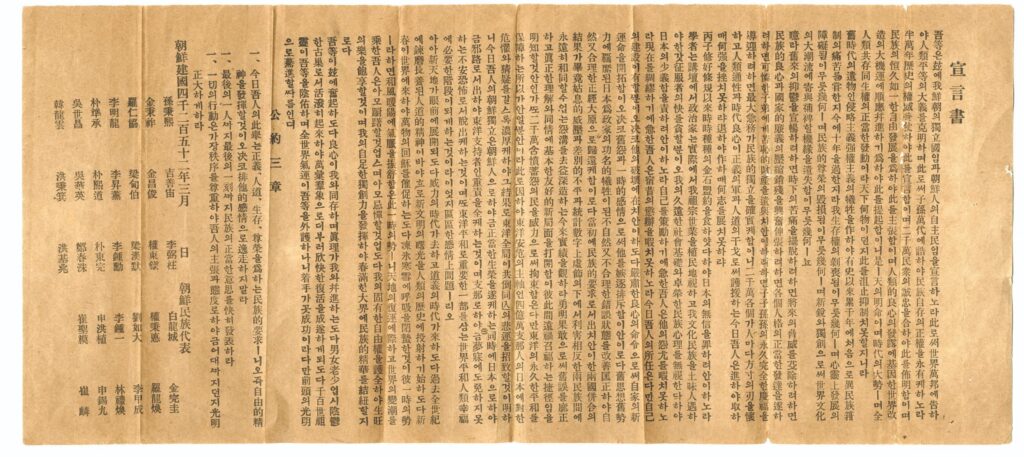 宣言書
吾等은玆에我鮮朝의獨立國임과朝鮮人의自主民임을宣言하노라此로써世界萬邦에告하
야人類平等의大義를克明하며此로써子孫萬代에誥하야民族自存의正權을永有케하노라
半萬年歷史의權威를仗하야此를宣言함이며二千萬民衆의誠忠을合하야此를佈明함이며
民族의恒久如一한自由發展을爲하야此를主張함이며人類的良心의發露에基因한世界改
造의大機運에順應幷進하기爲하야此를提起함이니是ㅣ天의明命이며時代의大勢ㅣ며全
人類共存同生權의正當한發動이라天下何物이던지此를沮止抑制치못할지니라
舊時代의遺物인侵略主義强權主義의犧牲을作하야有史以來累千年에처음으로異民族箝
制의痛苦를嘗한지今에十年을過한지라我生存權의剝喪됨이무릇幾何ㅣ며心靈上發展의
障礙됨이무릇幾何ㅣ며民族的尊榮의毁損됨이무릇幾何ㅣ며新銳와獨創으로써世界文化
의大潮流에寄與補裨할機緣을遺失함이무릇幾何ㅣ뇨
噫라舊來의抑鬱을宣暢하려하면時下의苦痛을擺脫하려하면將來의脅威를芟除하려하면
民族的良心과國家的廉義의壓縮銷殘을興奮伸張하려하면各個人格의正當한發達을遂하
려하면可憐한子弟에게苦恥的財産을遺與치안이하려하면子子孫孫의永久完全한慶福을
導迎하려하면最大急務가民族的獨立을確實케함이니二千萬各個가人마다方寸의刃을懷
하고人類通性과時代良心이正義의軍과人道의干戈로써護援하는今日吾人은進하야取하
매何强을挫치못하랴退하야作하매何志를展치못하랴
丙子修好條規以來時時種種의金石盟約을食하얏다하야日本의無信을罪하려안이하노라
學者는講壇에서政治家는實際에서我祖宗世業을植民地視하고我文化民族을土昧人遇하
야한갓征服者의快를貪할뿐이오我의久遠한社會基礎와卓犖한民族心理를無視한다하야
日本의少義함을責하려안이하노라自己를策勵하기에急한吾人은他의怨尤를暇치못하노
라現在를綢繆하기에急한吾人은宿昔의懲辨을暇치못하노라今日吾人의所任은다만自己
의建設이有할뿐이오決코他의破壞에在치안이하도다嚴肅한良心의命令으로써自家의新
運命을開拓함이오決코舊怨과一時的感情으로써他를嫉逐排斥함이안이로다舊思想舊勢
力에羈縻된日本爲政家의功名的犧牲이된不自然又不合理한錯誤狀態를改善匡正하야自
然又合理한正經大原으로歸還케함이로다當初에民族的要求로서出치안이한兩國倂合의
結果가畢竟姑息的威壓과差別的不平과統計數字上虛飾의下에서利害相反한兩民族間에
永遠히和同할수업는怨溝를去益深造하는今來實績을觀하라勇明果敢으로써舊誤를廓正
하고眞正한理解와同情에基本한友好的新局面을打開함이彼此間遠禍召福하는捷徑임을
明知할것안인가또二千萬含憤蓄怨의民을威力으로써拘束함은다만東洋의永久한平和를
保障하는所以가안일뿐안이라此로因하야東洋安危의主軸인四億萬支那人의日本에對한
危懼와猜疑를갈스록濃厚케하야그結果로東洋全局이共倒同亡의悲運을招致할것이明하
니今日吾人의朝鮮獨立은朝鮮人으로하야금正當한生榮을遂케하는同時에日本으로하야
금邪路로서出하야東洋支持者인重責을全케하는것이며支那로하야금夢寐에도免하지못
하는不安恐怖로서脫出케하는것이며또東洋平和로重要한一部를삼는世界平和人類幸福
에必要한階段이되게하는것이라이엇지區區한感情上問題ㅣ리오
아아新天地가眼前에展開되도다威力의時代가去하고道義의時代가來하도다過去全世紀
에鍊磨長養된人道的精神이바야흐로新文明의曙光을人類의歷史에投射하기始하도다新
春이世界에來하야萬物의回蘇를催促하는도다凍氷寒雪에呼吸을閉蟄한것이彼一時의勢
ㅣ라하면和風暖陽에氣脈을振舒함은此一時의勢ㅣ니天地의復運에際하고世界의變潮를
乘한吾人은아모躊躇할것업스며아모忌憚할것업도다我의固有한自由權을護全하야生旺
의樂을飽享할것이며我의自足한獨創力을發揮하야春滿한大界에民族的精華를結紐할지
로다
吾等이玆에奮起하도다良心이我와同存하며眞理가我와幷進하는도다男女老少업시陰鬱
한古巢로서活潑히起來하야萬彙羣象으로더부러欣快한復活을成遂하게되도다千百世祖
靈이吾等을陰佑하며全世界氣運이吾等을外護하나니着手가곳成功이라다만前頭의光明
으로驀進할따름인뎌
公約三章
一、今日吾人의此擧는正義、人道、生存、尊榮을爲하는民族的要求ㅣ니오즉自由的精
神을發揮할것이오決코排他的感情으로逸走하지말라
一、最後의一人까지最後의一刻까지民族의正當한意思를快히發表하라
一、一切의行動은가장秩序를尊重하야吾人의主張과態度로하야금어대까지던지光明
正大하게하라
朝鮮建國四千二百五十二年三月 日 朝鮮民族代表
孫秉熙 吉善宙 李弼柱 白龍城 金完圭
金秉祚 金昌俊 權東鎭 權秉悳 羅龍煥
羅仁協 梁甸伯 梁漢默 劉如大 李甲成
李明龍 李昇薰 李鍾勳 李鍾一 林禮煥
朴準承 朴熙道 朴東完 申洪植 申錫九
吳世昌 吳華英 鄭春洙 崔聖模 崔麟
韓龍雲 洪秉箕 洪基兆